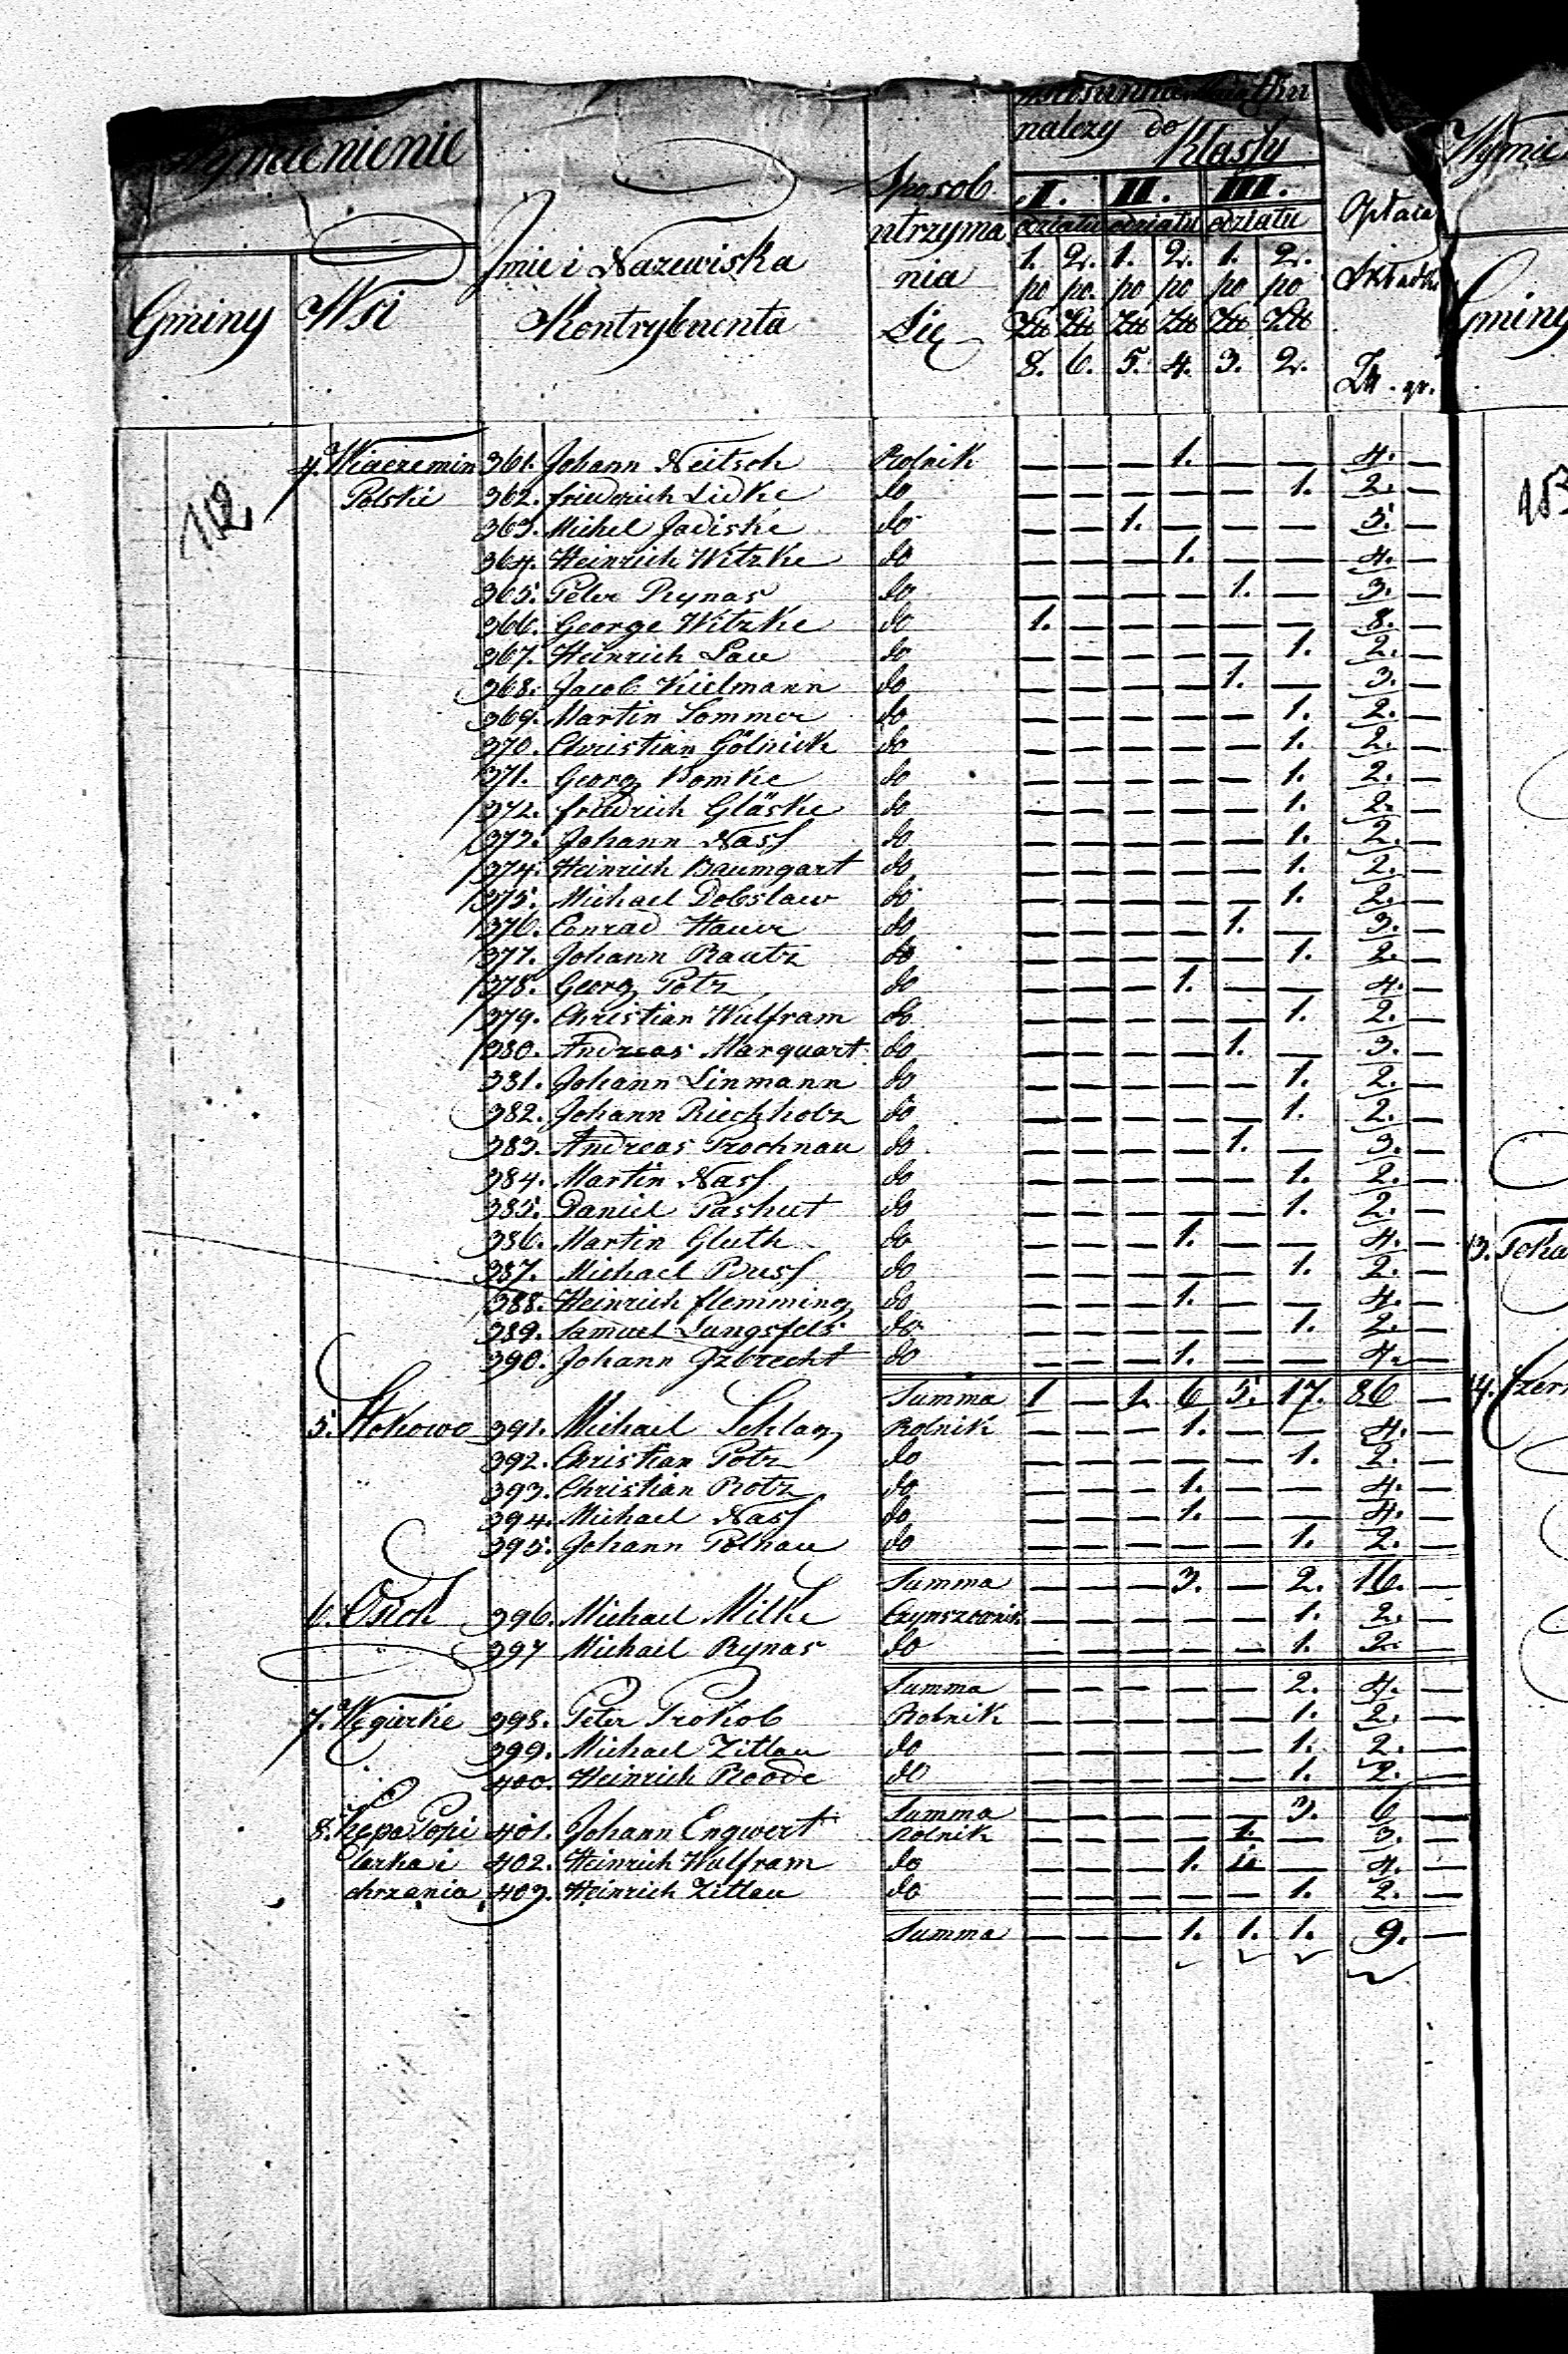 Wymienienie
należy do Klassy
Sposob utrzymania Się
I. II. III.
oddziału oddziału oddziału
Opłaca Składki
Gminy Wsi
Jmie i Nazewiska Kontrybuenta
1. 2. 1. 2. 1. 2.
po po. po po po po
Złt Złt Złt Złt Złt Złt
8. 6. 5. 4. 3. 2.
Złt. gr.
112
4. Wiaczemin 361. Johann Neitsch Rolnik — — — 1. — — 4. —
Polski 362. Friederich Lidke do — — — — — 1. 2. —
363. Michel Jadiske do — — 1. — — — 5. —
364. Heinrich Witzke do — — — 1. — — 4. —
365. Peter Rynas do — — — — 1. — 3. —
366. George Witzke do 1. — — — — — 8. —
367. Heinrich Lau do — — — — — 1. 2. —
368. Jacob Kielmann do — — — — 1. — 3. —
369. Martin Sommer do — — — — — 1. 2. —
370. Christian Gölnick do — — — — — 1. 2. —
371. Georg Bomke do — — — — — 1. 2. —
372. Friedrich Gläske do — — — — — 1. 2. —
373. Johann Nass do — — — — — 1. 2. —
374. Heinrich Baumgart do — — — — — 1. 2. —
375. Michael Dobslaw do — — — — — 1. 2. —
376. Conrad Hauer do — — — — 1. — 3. —
377. Johann Rautz do — — — — — 1. 2. —
378. Georg Potz do — — — 1. — — 4. —
379. Christian Wulfram do — — — — — 1. 2. —
380. Andreas Marquart do — — — — 1. — 3. —
381. Johann Linmann do — — — — — 1. 2. —
382. Johann Riechholz do — — — — — 1. 2. —
383. Andreas Prochnau do — — — — 1. — 3. —
384. Martin Nass do — — — — — 1. 2. —
385. Daniel Pashut do — — — — — 1. 2. —
386. Martin Gluth do — — — 1. — — 4. —
387. Michael Buss do — — — — — 1. 2. —
388. Heinrich Flemming do — — — 1. — — 4. —
389. Samuel Lungsfels do — — — — — 1. 2. —
390. Johann Jzbrecht do — — — 1. — — 4. —
Summa 1 — 1. 6 5. 17. 86 —
5. Stokowo 391. Michael Schlag Rolnik — — — 1. — — 4. —
392. Christian Potz do — — — — — 1. 2. —
393. Christian Rotz do — — — 1. — — 4. —
394. Michael Nass do — — — 1. — — 4. —
395. Johann Polnau do — — — — — 1. 2. —
Summa — — — 3. — 2. 16. —
6. Osiek 396. Michael Milke Czynszownik — — — — — 1. 2. —
397 Michael Rynas do — — — — — 1. 2. —
Summa — — — — — 2. 4. —
7. Węgierke 398. Peter Prokob Rolnik — — — — — 1. 2. —
399. Michael Zittau do — — — — — 1. 2. —
400. Heinrich Roode do — — — — — 1. 2. —
Summa — — — — — 3. 6 —
8. Kępa Popi 401. Johann Engwert Rolnik — — — — 1. — 3. —
larka i 402. Heinrich Wulfram do — — — 1. — — 4. —
chrzania 403. Heinrich Zittau do — — — — — 1. 2. —
Summa — — — 1. 1. 1. 9. —
Gminy